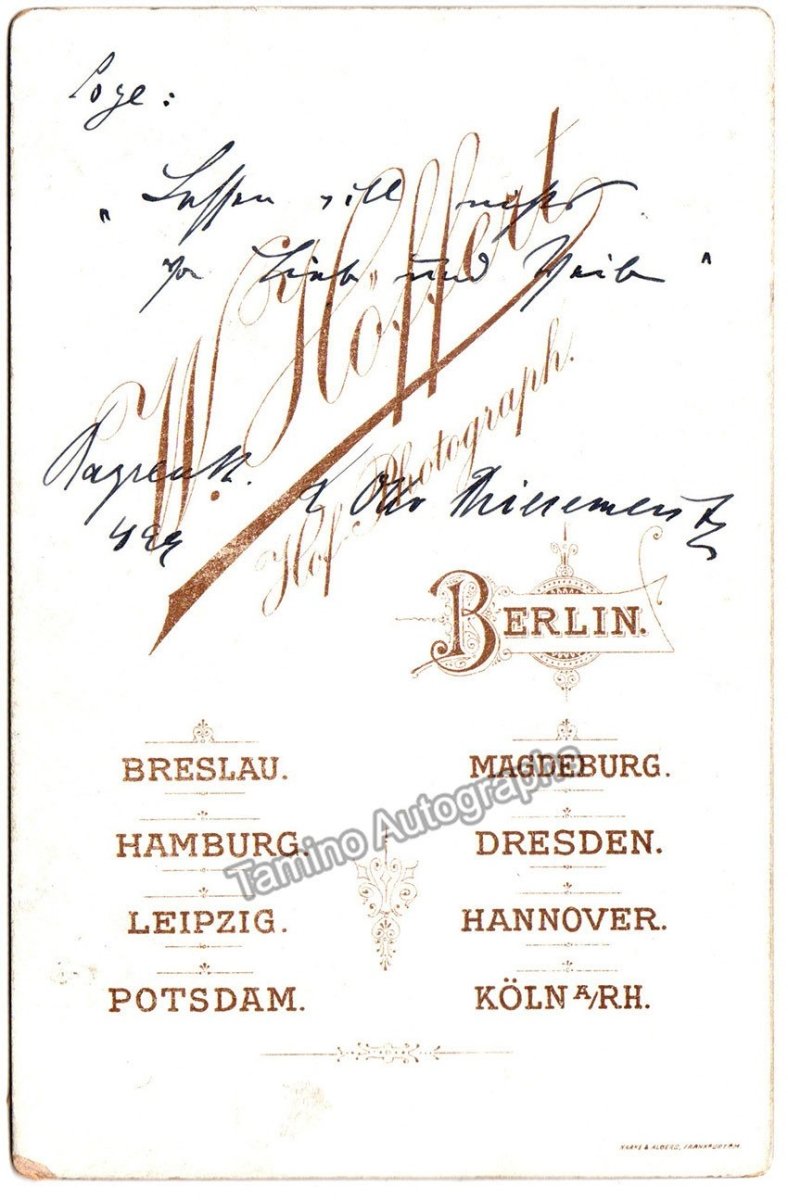 Loge:
„Lassen will nichts
von Lieb' und Weib"
W. Höffert
Hof-Photograph.
Bayreuth. Dr Otto Briesemeister
BERLIN.
BRESLAU.
MAGDEBURG.
HAMBURG.
DRESDEN.
LEIPZIG.
HANNOVER.
POTSDAM.
KÖLN A/RH.
Tamino Autographs